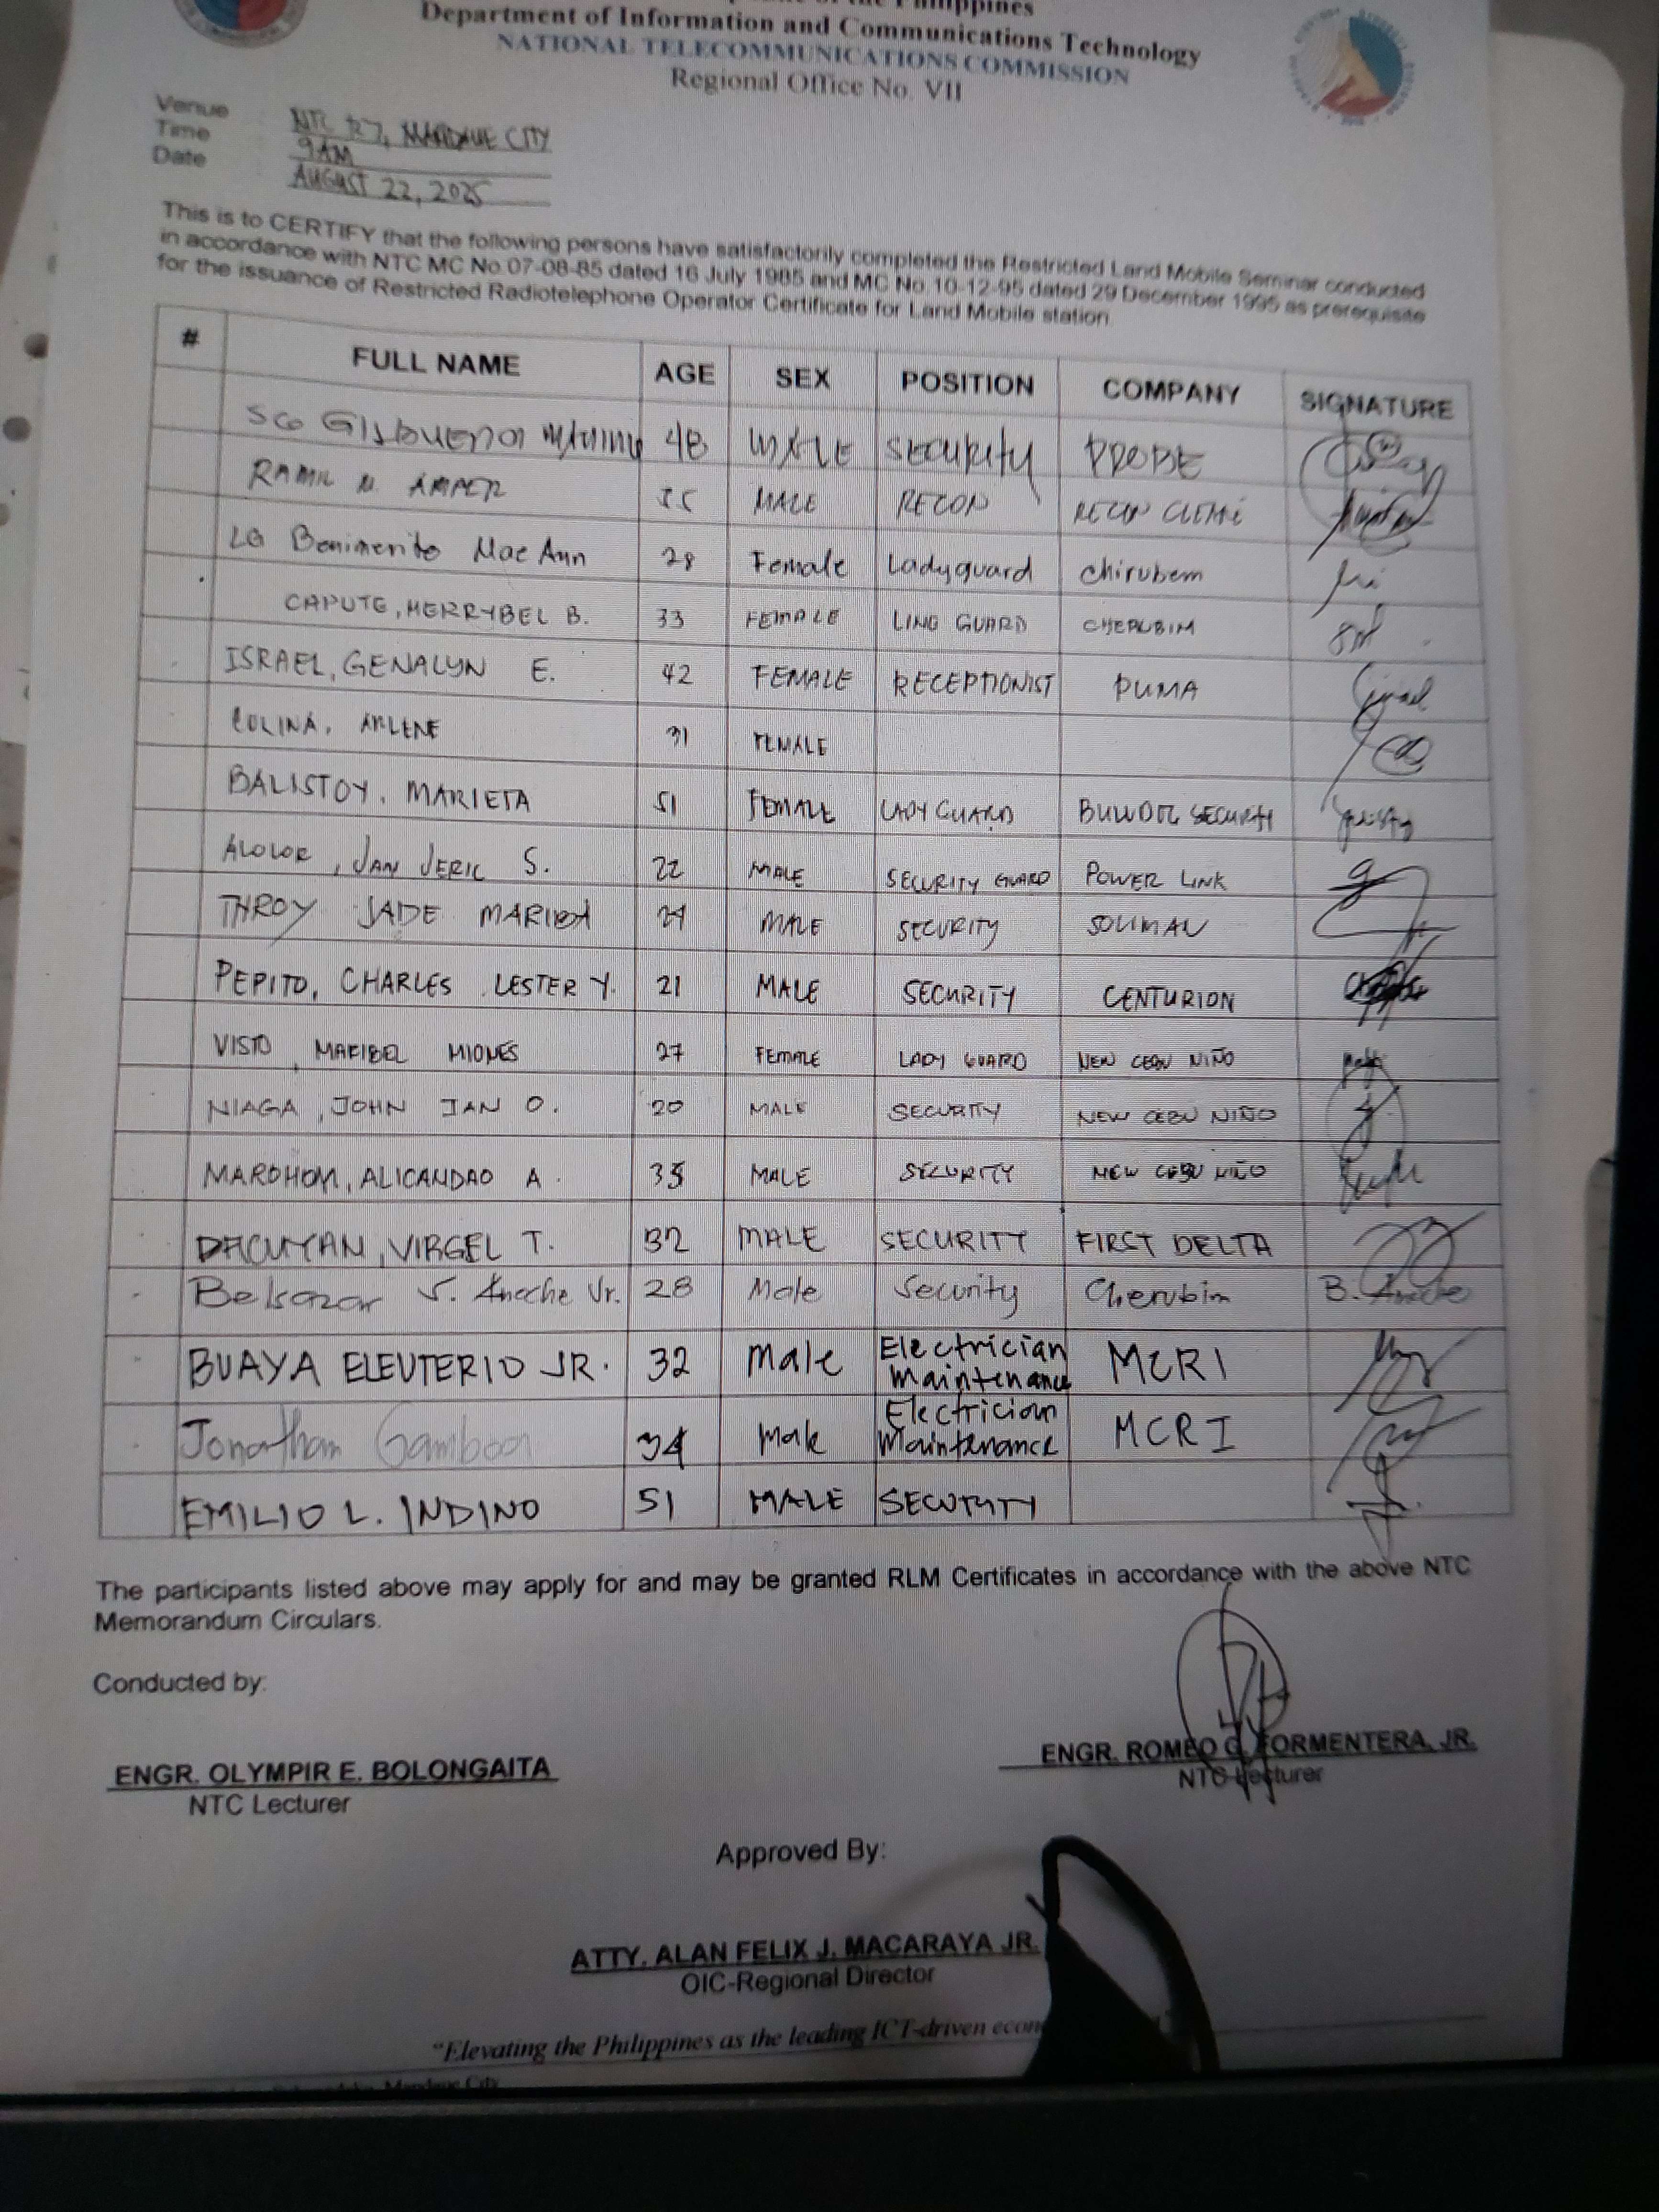 Philippines
Department of Information and Communications Technology
NATIONAL TELECOMMUNICATIONS COMMISSION
Regional Office No. VII
Venue NTC R7, MANDAUE CITY
Time 9AM
Date AUGUST 22, 2025
This is to CERTIFY that the following persons have satisfactorily completed the Restricted Land Mobile Seminar conducted
in accordance with NTC MC No.07-08-85 dated 16 July 1985 and MC No.10-12-95 dated 29 December 1995 as prerequisite
for the issuance of Restricted Radiotelephone Operator Certificate for Land Mobile station.
# FULL NAME AGE SEX POSITION COMPANY SIGNATURE
48 MALE SECURITY PROBE
RAMIL N. AMPER MALE RECON RECON
LG Benimerito Mae Ann 28 Female Ladyguard Chirubem
CAPUTE, MERRYBEL B. 33 FEMALE GUARD CHERUBIM
ISRAEL, GENALYN E. 42 FEMALE RECEPTIONIST PUMA
COLINA, ARLENE 31 FEMALE
BALISTOY, MARIETA 51 FEMALE LADY GUARD SECURITY
ALOLOR, JAN JERIC S. 22 MALE SECURITY GUARD POWER LINK
THROY JADE MALE SECURITY SOLIMAN
PEPITO, CHARLES LESTER Y. 21 MALE SECURITY CENTURION
VISTO MARIBEL MIONES 27 FEMALE LADY GUARD NEW CEBU NIÑO
NIAGA, JOHN IAN O. 20 MALE SECURITY NEW CEBU NIÑO
MAROHOM, ALICANDAO A. 35 MALE SECURITY NEW CEBU NIÑO
DACUYAN, VIRGEL T. 32 MALE SECURITY FIRST DELTA
Belsazar S. Aneche Jr. 28 Male Security Cherubim B. Aneche
BUAYA ELEUTERIO JR. 32 Male Electrician Maintenance MCRI
Jonathan Gamboa 34 Male Electrician Maintenance MCRI
EMILIO L. INDINO 51 MALE SECURITY
The participants listed above may apply for and may be granted RLM Certificates in accordance with the above NTC
Memorandum Circulars.
Conducted by:
ENGR. OLYMPIR E. BOLONGAITA
NTC Lecturer
ENGR. ROMEO G. FORMENTERA, JR.
NTC Lecturer
Approved By:
ATTY. ALAN FELIX J. MACARAYA JR.
OIC-Regional Director
"Elevating the Philippines as the leading ICT-driven
Mandaue City